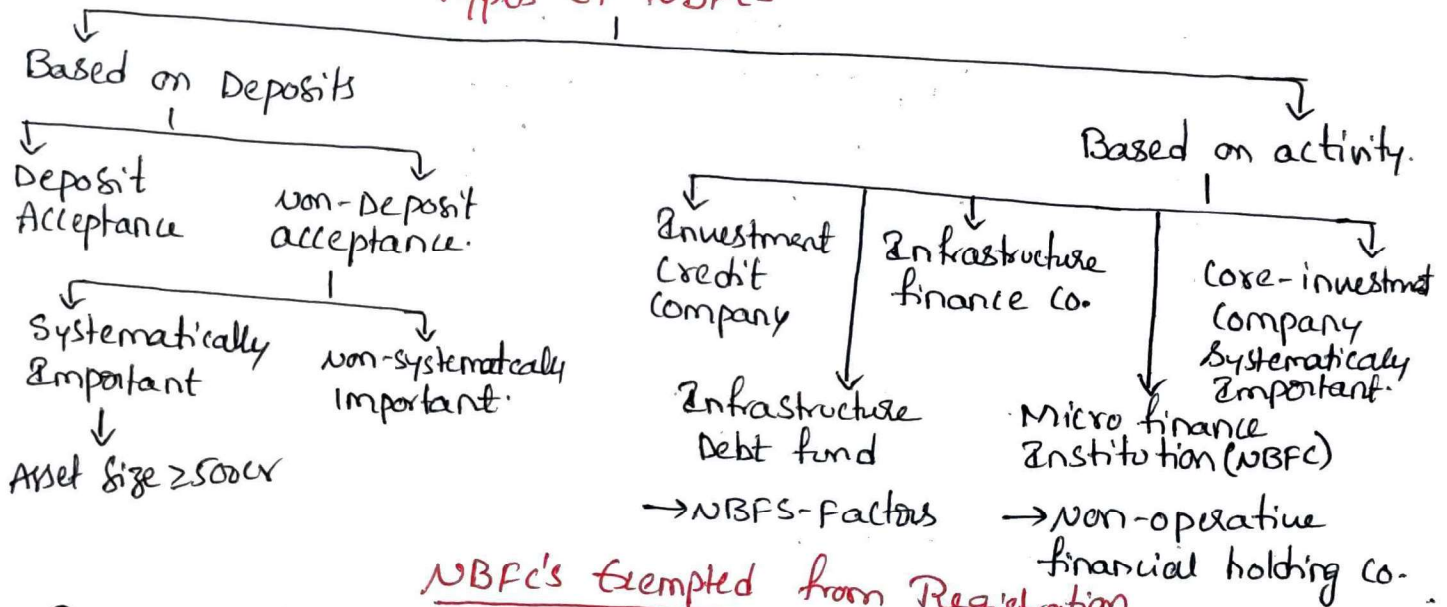 Types of NBFC
Based on Deposits
Based on activity.
Deposit
Acceptance
Non-Deposit
acceptance.
Systematically
Important
Non-systematcaly
Important.
Asset Size ≥500cr
Investment
Credit
Company
Infrastructure
finance co.
Core-investmnt
Company
Systematicaly
Important.
Infrastructure
Debt fund
Micro finance
Institution (NBFC)
→NBFS-Factors
→Non-operative
financial holding co.
NBFC's Exempted from Registration